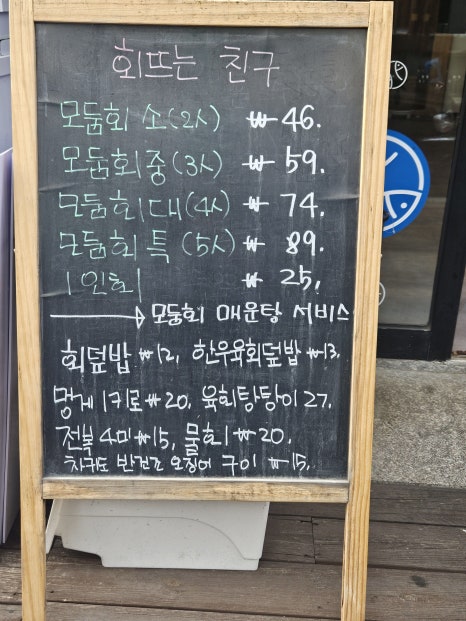 회뜨는 친구
모둠회 소(2人) ₩ 46.
모둠회 중(3人) ₩ 59.
모둠회 대(4人) ₩ 74.
모둠회 특(5人) ₩ 89.
1인회 ₩ 25.
모둠회 매운탕 서비스
회덮밥 ₩12. 한우육회덮밥 ₩13.
멍게 1키로 ₩20. 육회탕탕이 27.
전복 4미 ₩15, 물회 ₩20.
반건조 오징어 구이 ₩15.